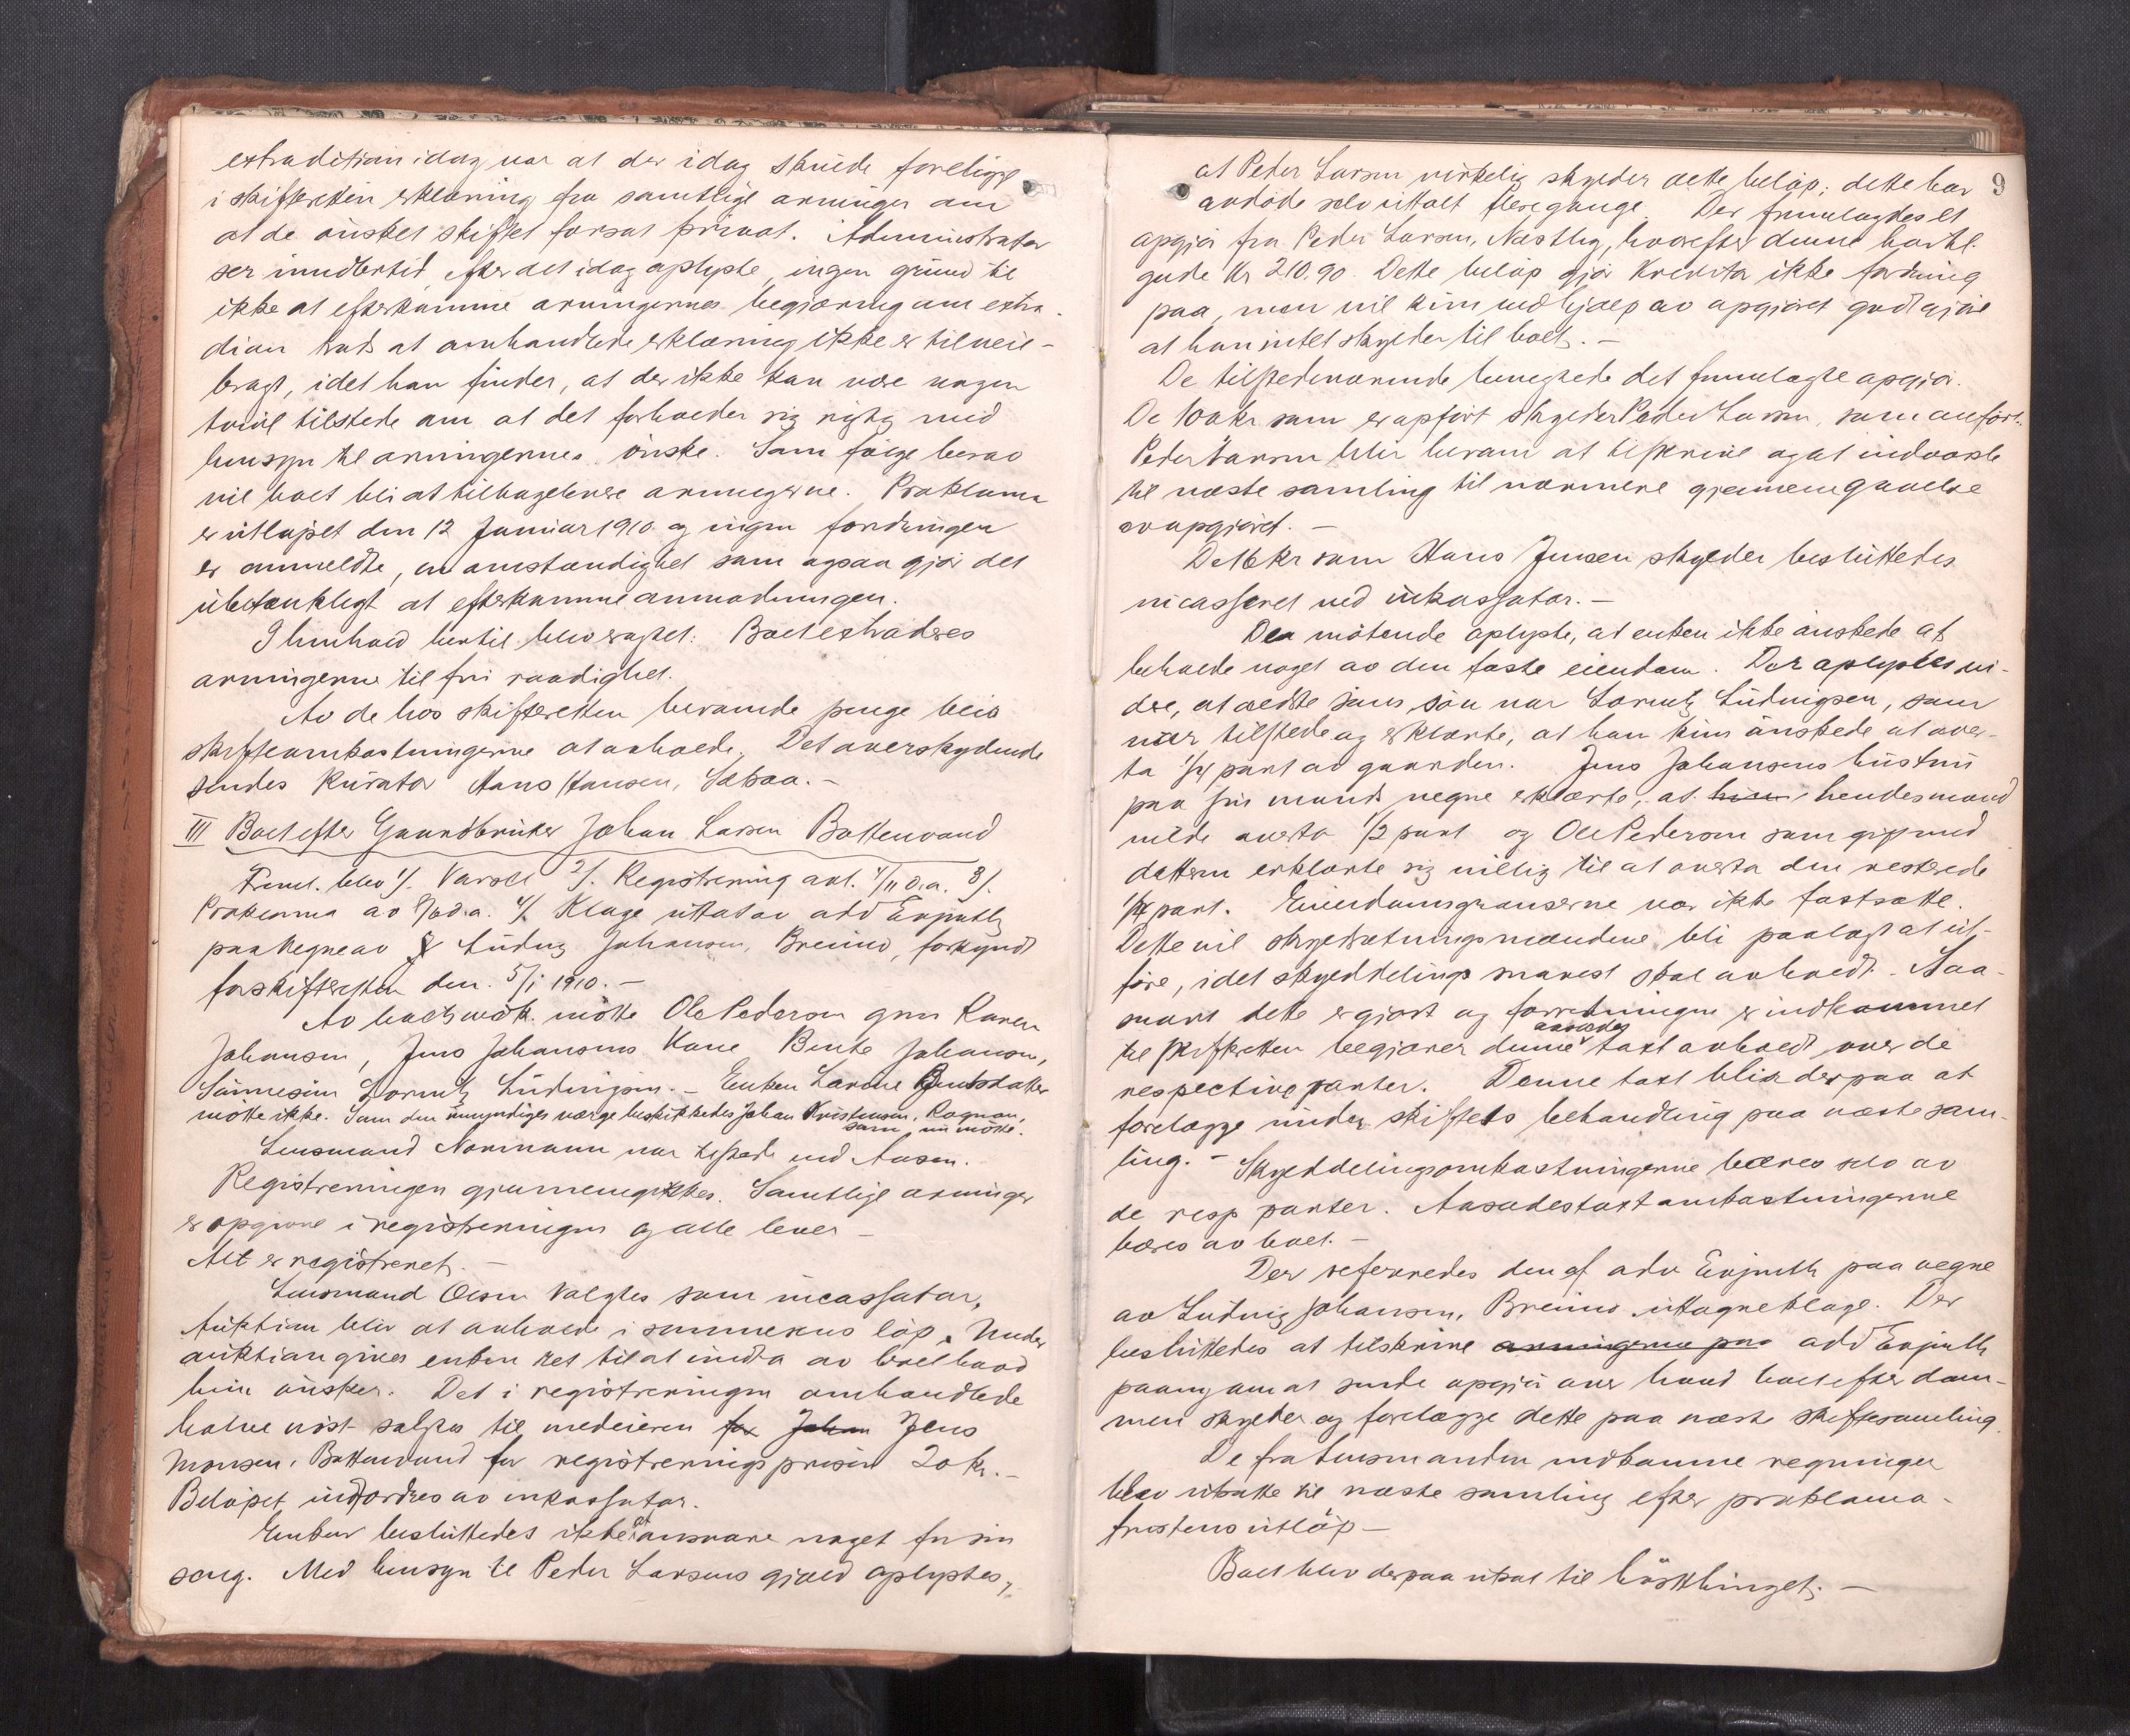 extradition idag var at der idag skulde foreligge
i skifteretten erklæring fra samtlige arvinger om
at de ønsket skiftet forsat privat. Administrator
ser imidlertid, efter det idag oplyste, ingen grund til
ikke at efterkomme arvingernes begjæring om extra-
dition trods at omhandlede erklæring ikke er tilveie-
bragt, idet han finder, at der ikke kan være nogen
tvivl tilstede om at det forholder sig rigtig med
hensyn til arvingernes ønske. Som følge herav
vil boet bli at tilbagelevere arvingerne. Proklama
er utløpet den 12 Januar 1910 og ingen fordringer
er anmeldte, en omstændighet som ogsaa gjør det
ubetænkeligt at efterkomme anmodningen.
I henhold hertil blev vedtat: Boet extraderes
arvingerne til fri raadighet.
Av de hos skifteretten beroende penge blir
skifteomkostningerne at avholde. Det overskydende
sendes Kurator Hans Hansen, Saksaa.-
III Boet efter Gaardbruker Johan Larsen Bottenvand
Freml. blev 1/. Varsel 2/. Registrering avl. 4/11 d.a. 3/.
Proklama av d.a. 4/. Klage uttat av adv Enjuth
paa vegne av Ludvig Johansen, Breivo, forkyndt
for skifteretten den 5/1 1910.-
Av boets vedk. møtte Ole Pedersen gm Karen
Johansen, Jens Johansens Kone Bente Johansen,
Sønnesøn Lorentz Ludvigsen.- Enken Lavine Bentsdatter
møtte ikke. Som den umyndiges værge beskikkedes Johan Kristensen, Rognan,
som nu møtte.
Lensmand Normann var tilstede ved Aasen.
Registreringen gjennemgikkes. Samtlige arvinger
er opgivne i registreringen og alle lever -
Alt er registreret.-
Lensmand Olsen valgtes som incassator,
Auktion blir at avholde i sommerens løp. Under
auktion gives enken ret til at indta av boet hvad
hun ønsker. Det i registreringen omhandlede
halve nøst solgtes til medeieren for Johan Jens
Monsen, Bottenvand for registreringsprisen 20 kr.-
Beløpet indfordres av inkassator.
Enken besluttedes ikke at ansvare noget for sin
seng. Med hensyn til Peder Larsens gjæld oplystes,
9
at Peder Larsen virkelig skylder dette beløp; dette har
avdøde selv uttalt flere gange. Der fremlagdes et
opgjør fra Peder Larsen, Næstby, hvorefter denne har til-
gode Kr 210.90. Dette beløp gjør Kreditor ikke fordring
paa, men vil kun ved hjælp av opgjøret godtgjøre
at han intet skylder til boet.-
De tilstedeværende benegtede det fremlagte opgjør.
De 100 kr som er opført skylder Peder Larsen, som anført.
Peder Larsen blir herom at tilskrive og at indvarsle
til næste samling til nærmere gjennemgaaelse
av opgjøret.-
De 16 kr som Hans Jensen skylder besluttedes
incasseret ved inkassator.-
De møtende oplyste, at enken ikke ønskede at
beholde noget av den faste eiendom. Der oplystes vi-
dere, at ældste søns søn var Lorentz Ludvigsen, som
var tilstede og erklærte, at han kun ønskede at over-
ta 1/4 part av gaarden. Jens Johansens hustru
paa sin mands vegne erklærte, at hendes mand
vilde overta 1/2 part og Ole Pedersen som gift med
datteren erklærte sig villig til at overta den resterende
1/4 part. Eiendomsgrænserne var ikke fastsatte.
Dette vil skyldsætningsmændene bli paalagt at ut-
føre, idet skylddeling snarest skal avholdt. Saa-
snart dette er gjort og forretningen er indkommet
til skifteretten begjæres denne aasædes takst avholdt over de
respective parter. Denne takst blir derpaa at
forelægge under skiftets behandling paa næste sam-
ling.- Skylddelingsomkostningerne bæres selv av
de resp parter. Aasædestakstomkostningerne
bæres av boet.-
Der refereredes den af adv Enjuth paa vegne
av Ludvig Johansen, Breivo uttagne klage. Der
besluttedes at tilskrive arvingerne paa adv Enjuth
paany om at sende opgjør over hvad boet efter dom-
men skylder og forelægge dette paa næste skiftesamling.
De fra lensmanden indkomne regninger
blev utsatte til næste samling efter proklama-
fristens utløp-
Boet blev derpaa utsat til høsttinget.-